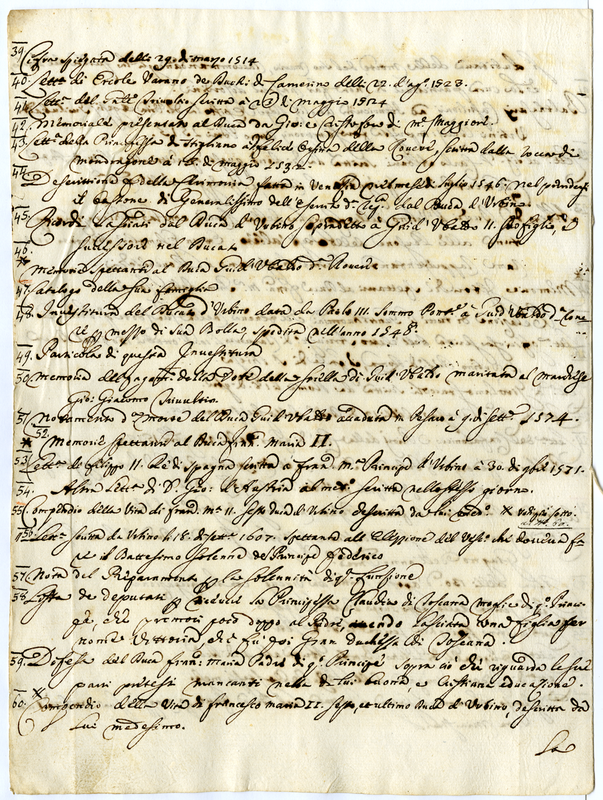 39 Cifra spiegata delli 29. di marzo 1514
40. Lettª di Ercole Varano de Duchi di Camerino delli 22. d'agº 1523.
41. Lettª del Trivultio scritta à 23 di Maggio 1524
42. Memoriale presentato al Duca da Gio: e Cristoforo di Mº Maggiore.
43. Lettª della Principessa di Stigliano à Felice Orsina della Rovere, scritta dalla rocca di
Mondragone à di maggio 1532
44. Descrittione della Cerimonia fatta in Venetia nel mese di luglio 1546. nel prendersi
il bastone di Generalissimo dell'Esercito dal Duca d'Urbino
45. Ricordi lasciati dal Duca d'Urbino sopradetto à Guid'Ubaldo II. suo figlio, e
successore nel Ducato
46. Memorie spettanti al Duca Guid'Ubaldo dª Rovere
47. Catalogo della sua famiglia
48. Investitura del Ducato d'Urbino data da Paolo III. Sommo Pontº à Guid'Ubaldo
per mezzo di sua Bolla, spedita nell'anno 1548.
49. Particola di questa Investitura
50 Memoria del pagatto della Dote della sorella di Guid'Ubaldo maritata al Marchese
Gio: Giacomo Trivultio.
51 Notamento d' morte del Duca Guid'Ubaldo accaduta in Pesaro à 9. di settº 1574.
52 * Memorie spettanti al Duca Franº Maria II.
53 Lettª di Filippo II. Rè di Spagna scritta à Franº Mª Principe d'Urbino à 30. di 9bre 1571.
54. Altra Lettª di D. Gio: d'Austria al medº scritta nello stesso giorno.
55 Compendio della Vita di Franº Mª II. sesto Duca d'Urbino descritta da * vedi più sotto
al nº 60.
56 Lettª scritta da Urbino li 18. di settº 1607. spettante all'Elezione del Vescº che doveva
per il Battesimo solenne del Principe Federico
57. Nota del Preparamento p la solennità di qª funzione
58. Lista de deputati p ricevere la Principessa Claudia di Toscana moglie di qº Princi-
pe, che premorì poco doppo al Padre, havendo lasciata una figlia per
nome Vittoria, che fù poi Gran Duchessa di Toscana.
59. Difesa del Duca Franº: Maria Padre di qº Principe sopra ciò che riguarda le sue
parti pretese mancanti nella di lui buona, e Cristiana educazione.
* 60. Compendio della Vita di Francesco Maria II. sesto, et ultimo Duca d'Urbino, descritta da
Lui medesimo.
La